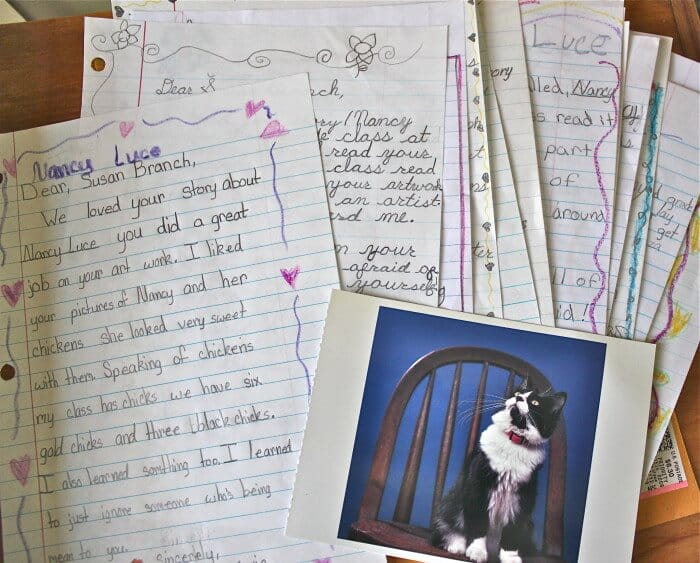 Nancy Luce
Dear, Susan Branch,
We loved your story about
Nancy Luce you did a great
job on your art work. I liked
your pictures of Nancy and her
chickens she looked very sweet
with them. Speaking of chickens
my class has chicks we have six
gold chicks and three black chicks.
I also learned somthing too. I learned
to just ignore someone who's being
mean to you.
Sincerely,
Dear
ch,
ory/Nancy
class at
read your
class read
your artwork
an artist
rd me.
in your
afraid of
yourself
ory
LUCE
lled, Nancy
s read it
part
of
around
ll of
id!
get
U.S. POSTAGE